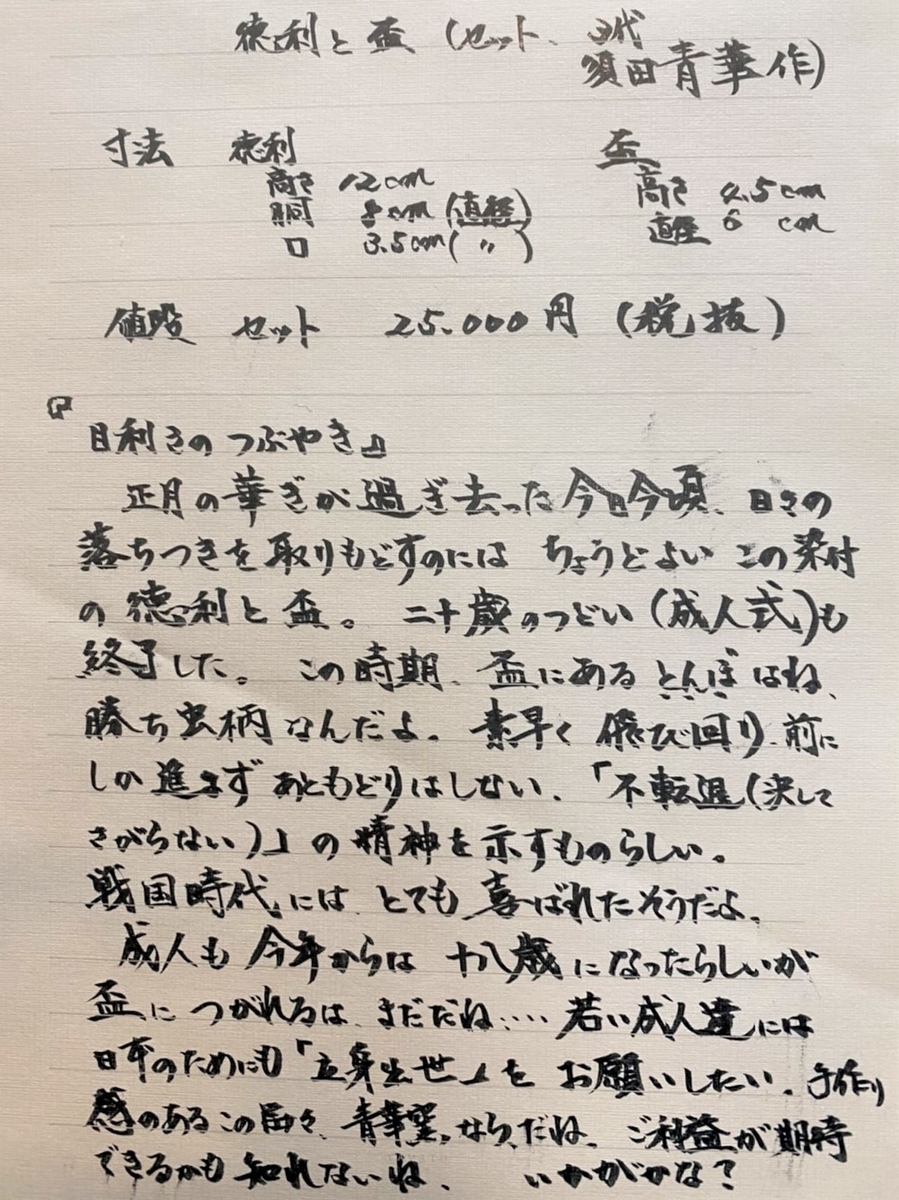 徳利と盃（セット、三代
須田青華作）
寸法 徳利 盃
高さ 12cm 高さ 4.5cm
胴 8cm（直径） 直径 6cm
口 3.5cm（〃）
値段 セット 25.000円（税抜）
『目利きのつぶやき』
正月の華ぎが過ぎ去った今日今頃、日々の
落ちつきを取りもどすのには ちょうどよい この染付
の徳利と盃。 二十歳のつどい（成人式）も
終了した。 この時期、盃にあるとんぼはね、
勝ち虫柄なんだよ。素早く飛び回り、前に
しか進まず あともどりはしない、「不転退（決して
さがらない）」の精神を示すものらしい。
戦国時代には とても 喜ばれたそうだよ。
成人も 今年からは 十八歳になったらしいが
盃に つがれるは、まだだね…… 若い成人達には
日本のためにも「立身出世」を お願いしたい。手作り
感のあるこの、青華窯。ならだね、ご利益が期待
できるかも知れないね、 いかがかな？